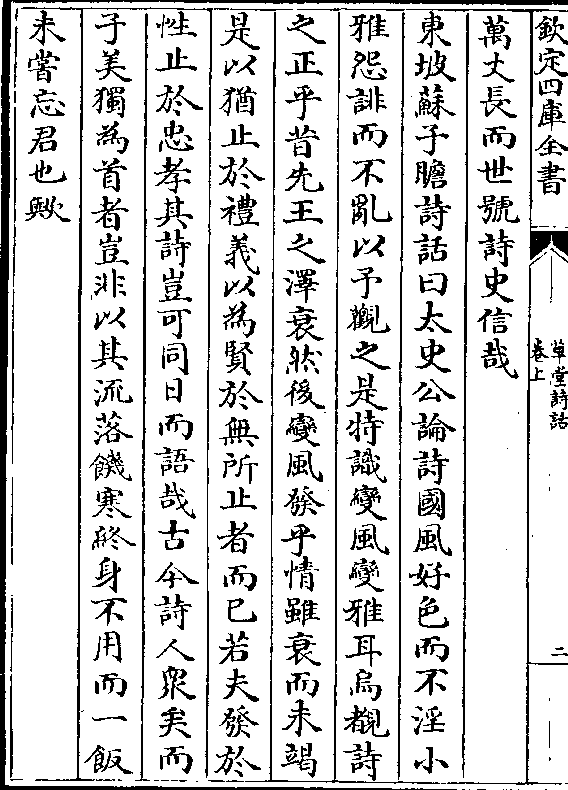 欽定四庫全書
草堂詩話
卷上
二
萬丈長而世號詩史信哉
東坡蘇子瞻詩話曰太史公論詩國風好色而不淫小
雅怨誹而不亂以予觀之是特識變風變雅耳烏覩詩
之正乎昔先王之澤衰然後變風發乎情雖衰而未竭
是以猶止於禮義以為賢於無所止者而已若夫發於
性止於忠孝其詩豈可同日而語哉古今詩人衆矣而
子美獨為首者豈非以其流落饑寒終身不用而一飯
未嘗忘君也歟